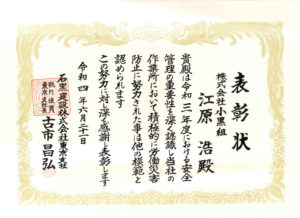 表彰状
株式会社小黒組
江原 浩 殿
貴殿は令和三年度における安全
管理の重要性を深く認識し当社の
作業所において積極的に労働災害
防止に努力された事は他の模範と
認められます
この努力に対し深く感謝し表彰します
令和四年六月二十一日
石黒建設株式会社東京支社
執行役員
東京支社長
古市 昌弘